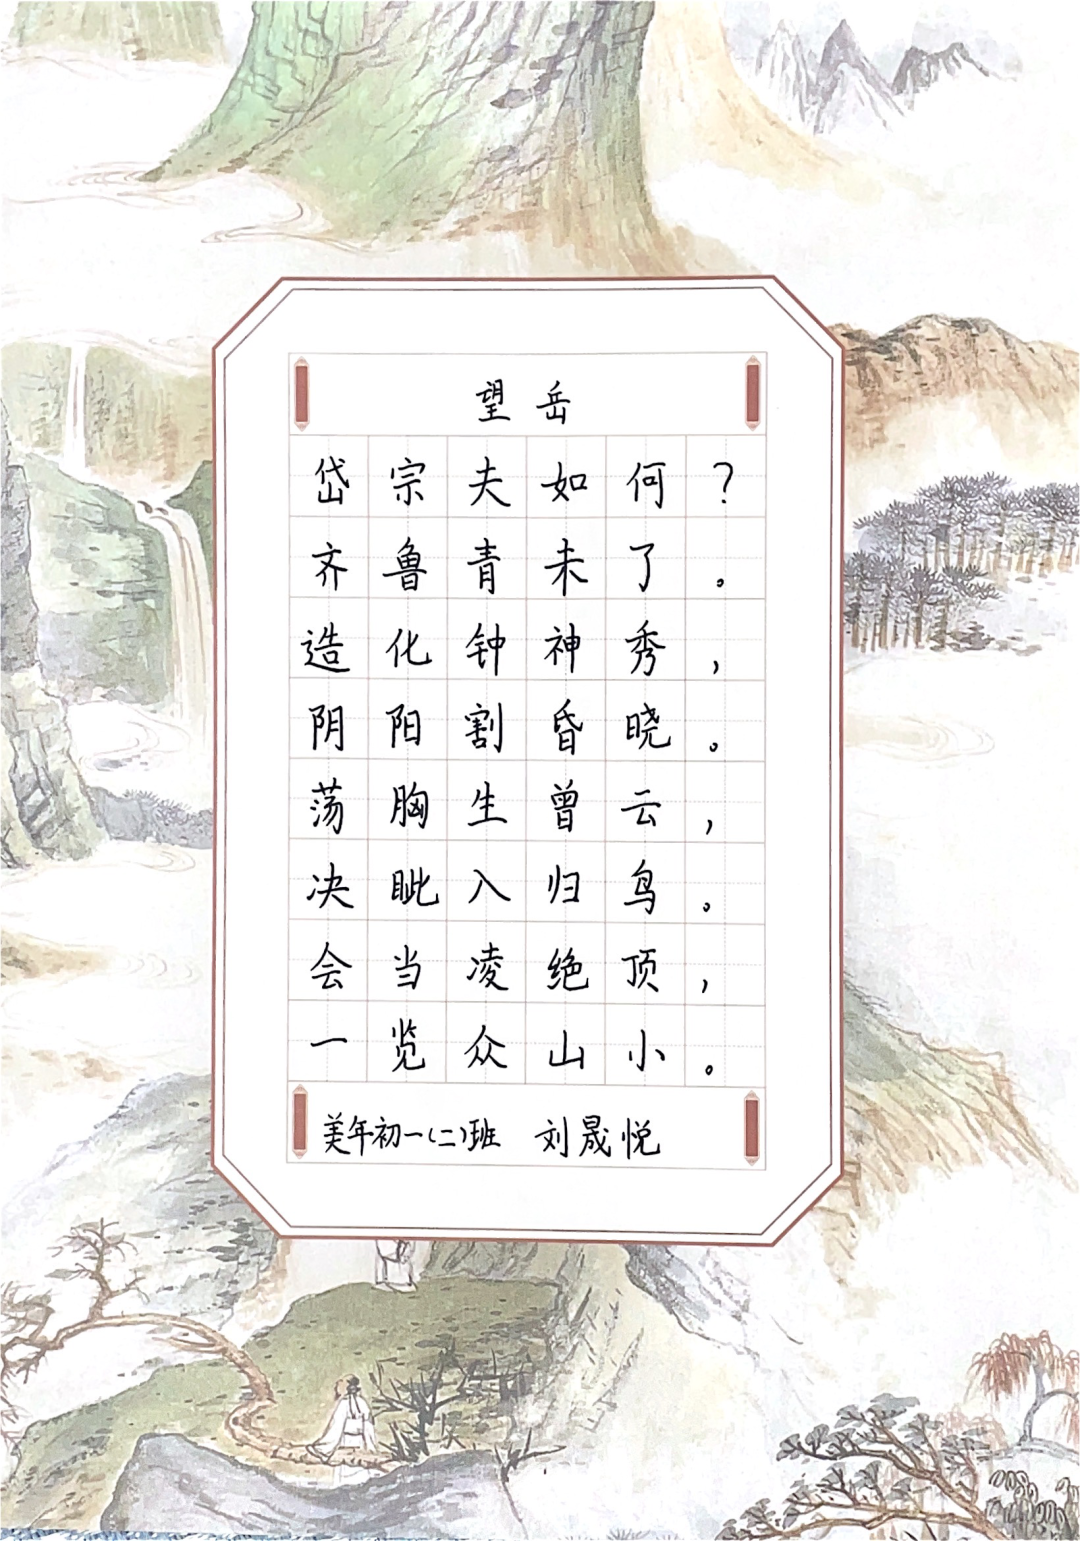 望岳
岱宗夫如何？
齐鲁青未了。
造化钟神秀，
阴阳割昏晓。
荡胸生曾云，
决眦入归鸟。
会当凌绝顶，
一览众山小。
美年初一(二)班 刘晟悦